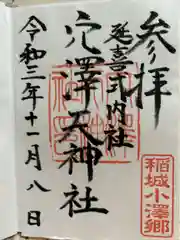 参拝
延喜式内社
穴澤天神社
令和三年十一月八日
稲城小澤郷